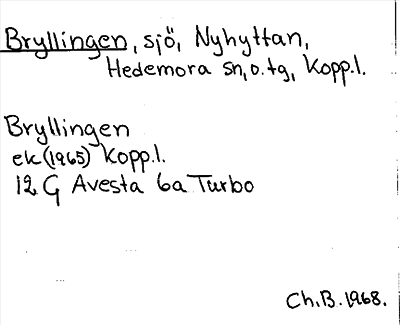 Bryllingen, sjö, Nyhyttan,
Hedemora sn, o. tg, Kopp.l.
Bryllingen
ek (1965) Kopp.l.
12 G Avesta 6a Turbo
Ch.B. 1968.